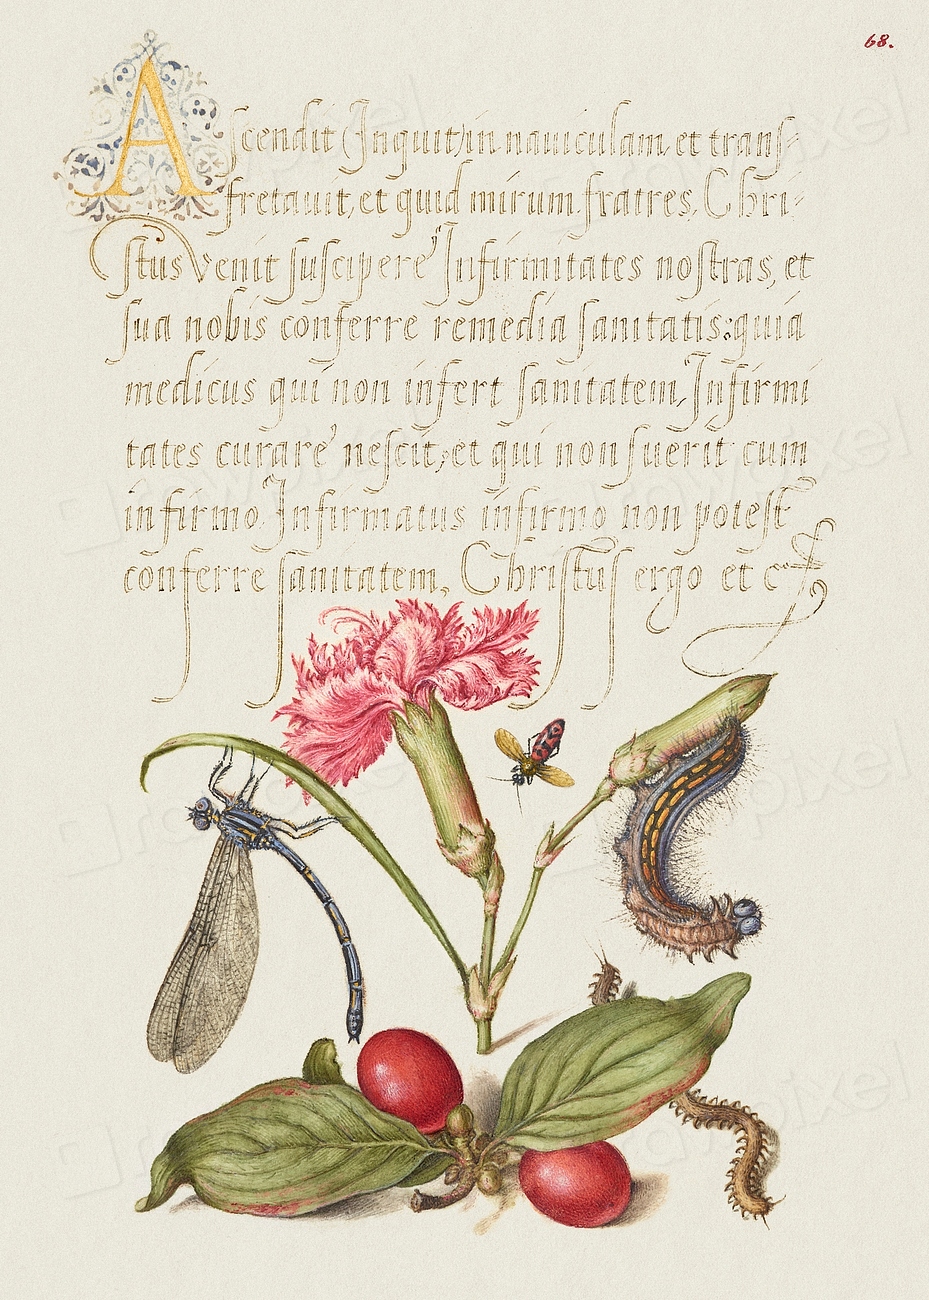 68.
Ascendit (Inquit) in nauiculam, et trans-
fretauit, et quid mirum fratres, Chri-
stus venit suscipere Infirmitates nostras, et
sua nobis conferre remedia sanitatis: quia
medicus qui non infert sanitatem, Infirmi
tates curare nescit, et qui non fuerit cum
infirmo Infirmatus infirmo non potest
conferre sanitatem, Christus ergo et cet
rawpixel